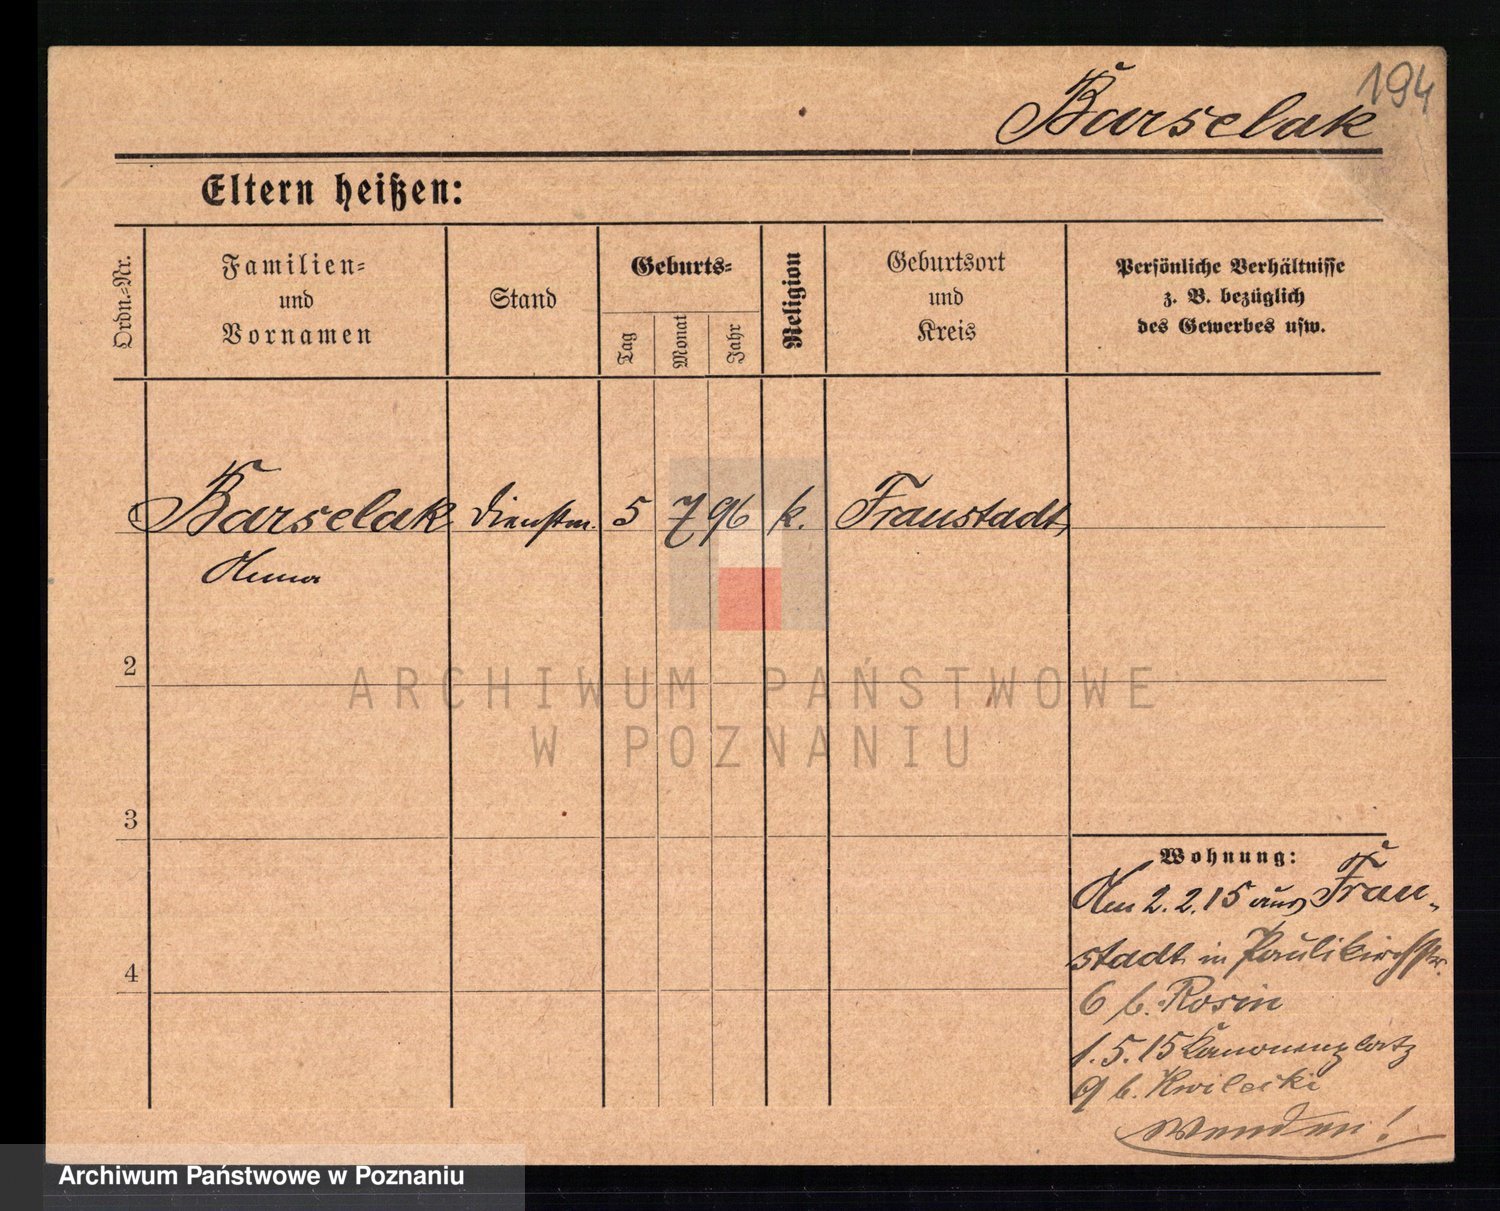 194
Barselak
Eltern heißen:
Ordn.-Nr.
Familien-
und
Vornamen
Stand
Geburts-
Tag
Monat
Jahr
Religion
Geburtsort
und
Kreis
Persönliche Verhältnisse
z. B. bezüglich
des Gewerbes usw.
Barselak Dienstm. 5 7 96 k. Fraustadt,
Anna
2
3
4
Wohnung:
Am 2.2.15 aus Frau-
stadt in Paulikirchstr.
6 b. Rosin
1.5.15 Kanonenplatz
9 b. Kwilecki
Wenden!
ARCHIWUM PAŃSTWOWE
W POZNANIU
Archiwum Państwowe w Poznaniu